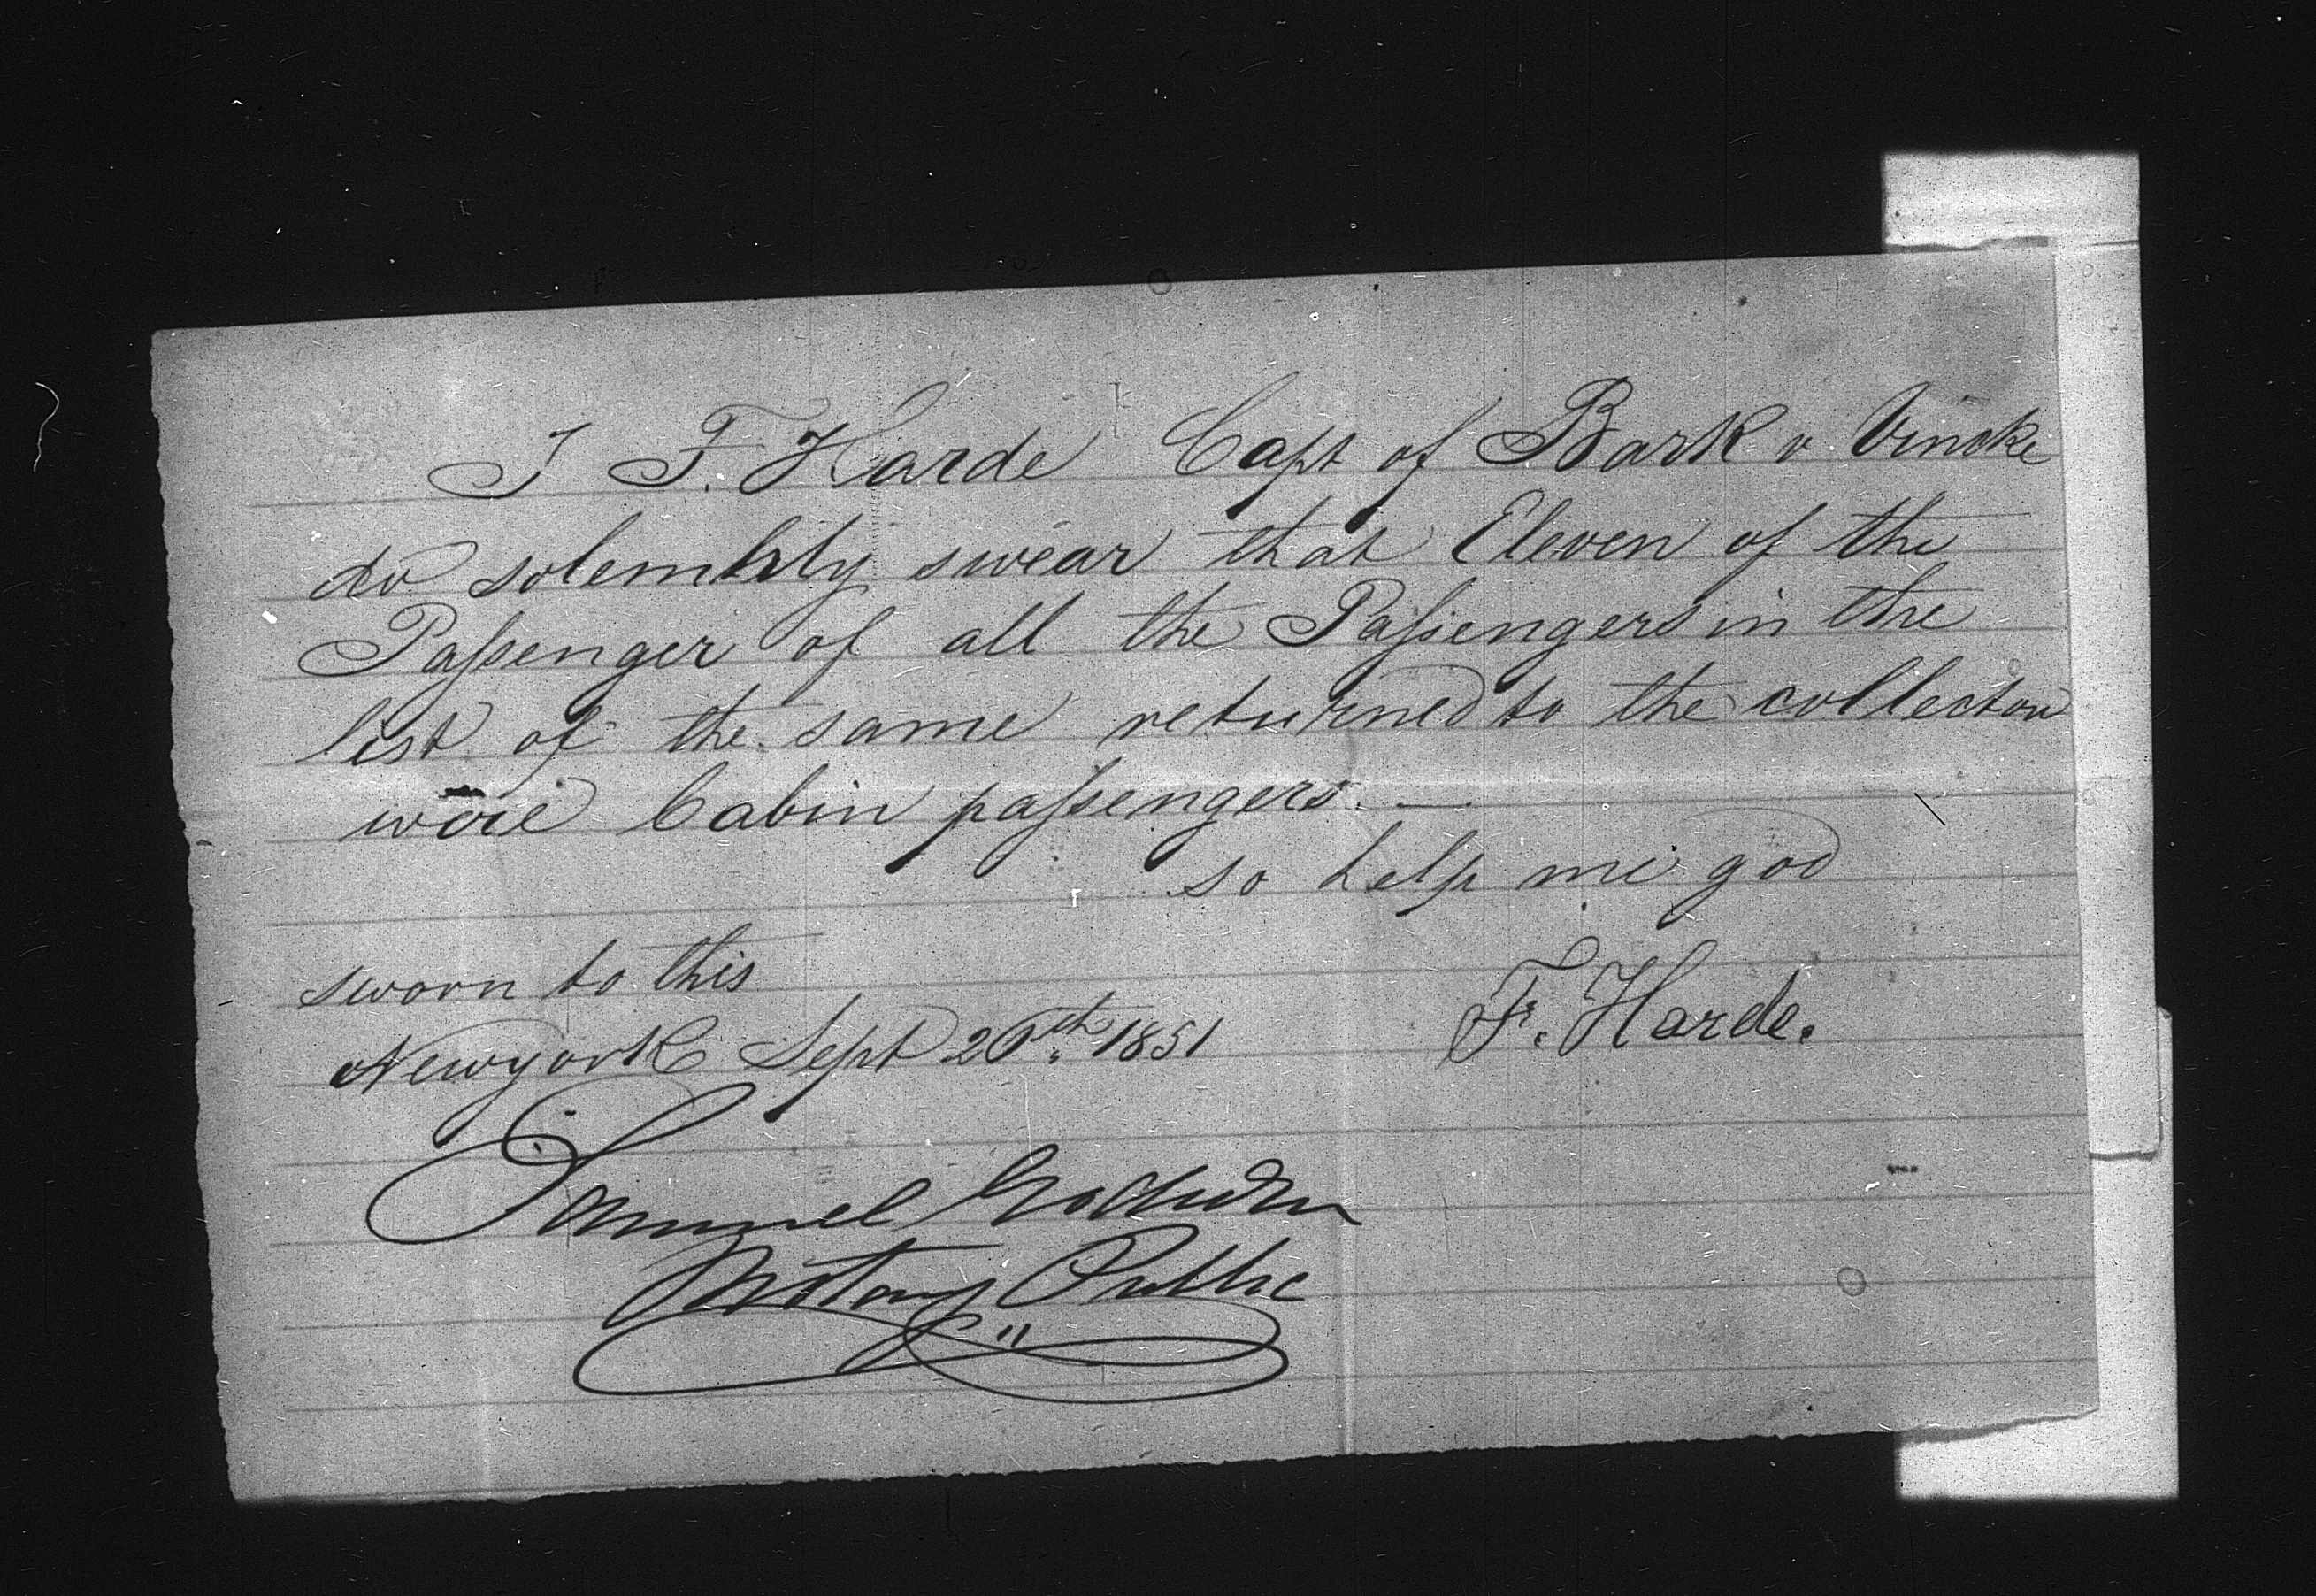 I F. Harde Capt of Bark v. Vincke
do solemnly swear that Eleven of the
Passenger of all the Passengers in the
list of the same returned to the collector
were Cabin passengers. —
so help me god
sworn to this
Newyork Sept 26th 1851
F. Harde.
Samuel
Notary Public